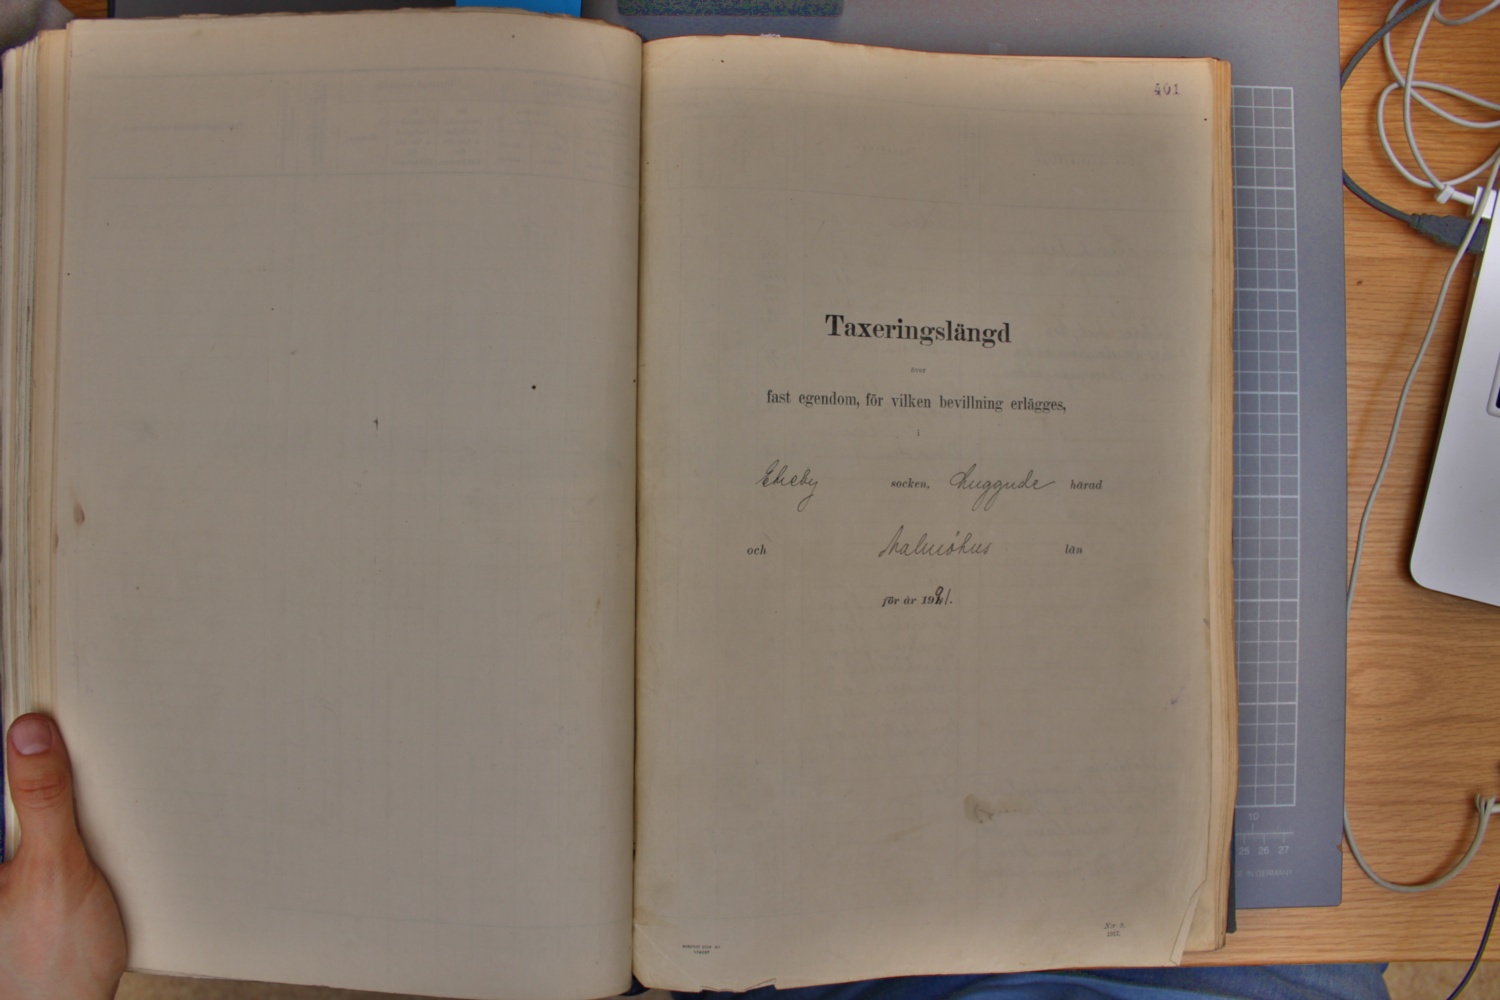 401
Taxeringslängd
över
fast egendom, för vilken bevillning erlägges,
i
Ekeby socken, Luggude härad
och Malmöhus län
för år 1921.
No 9.
1917.
10
25 26 27